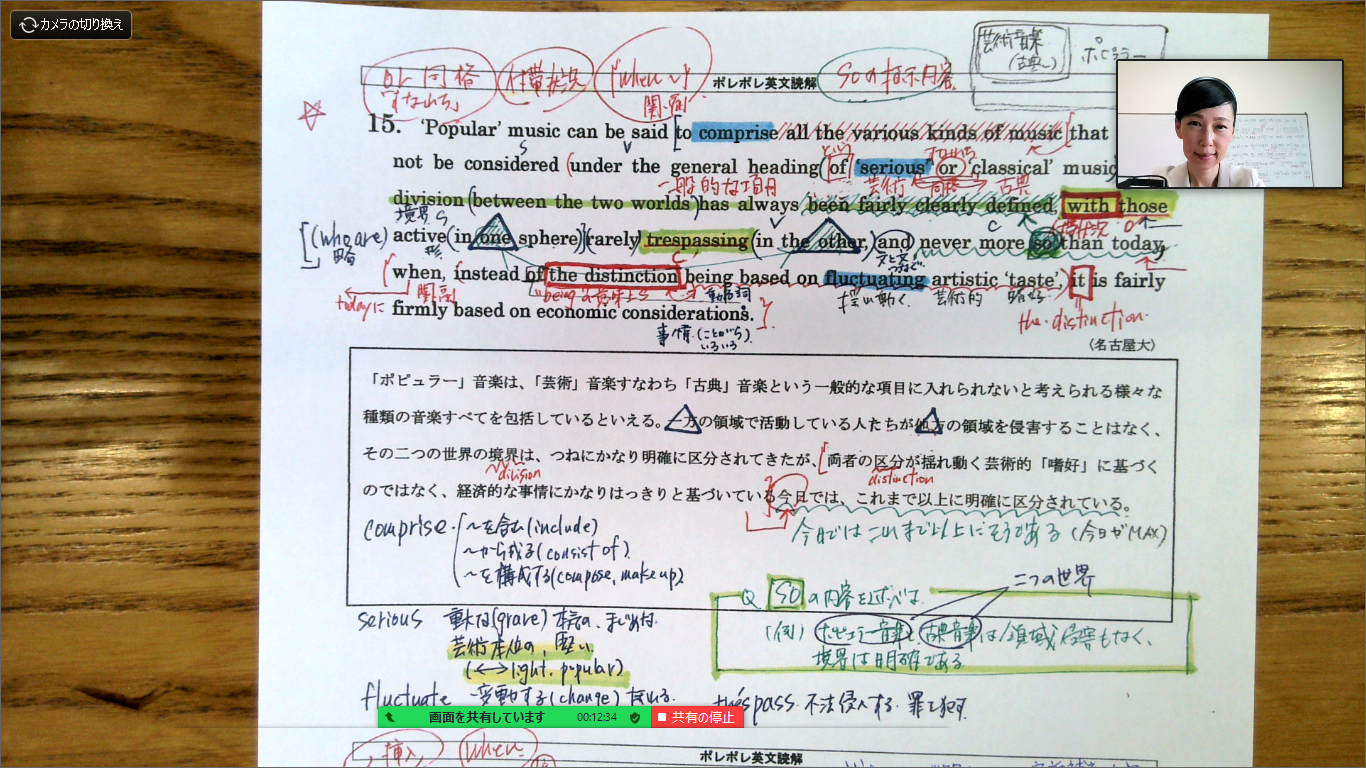 カメラの切り換え
芸術音楽
(古典)
ポピュラー
or 同格
「すなわち」
付帯状況
「when ~」
関・副
ポレポレ英文読解
soの指示内容
15. 'Popular' music can be said to comprise all the various kinds of music that
S V
not be considered (under the general heading (of 'serious' or 'classical' music
一般的な項目 芸術 同格 古典
division (between the two worlds) has always been fairly clearly defined, with those
境界 S V C 付帯状況
(who are) active (in one sphere) (rarely trespassing (in the other,) and never more so than today,
略
when, instead of the distinction being based on fluctuating artistic 'taste', it is fairly
todayに 関・副 動名詞 揺れ動く 芸術的 嗜好
the distinction
firmly based on economic considerations.
事情 (ことがら)
いろいろ
(名古屋大)
「ポピュラー」音楽は、「芸術」音楽すなわち「古典」音楽という一般的な項目に入れられないと考えられる様々な
種類の音楽すべてを包括しているといえる。一方の領域で活動している人たちが他方の領域を侵害することはなく、
その二つの世界の境界は、つねにかなり明確に区分されてきたが、両者の区分が揺れ動く芸術的「嗜好」に基づく
division distinction
のではなく、経済的な事情にかなりはっきりと基づいている今日では、これまで以上に明確に区分されている。
今日ではこれまで以上にそうである (今日がMAX)
comprise ~を含む(include)
~から成る(consist of)
~を構成する(compose, make up)
二つの世界
Q. soの内容を述べよ
(例) ポピュラー音楽と古典音楽は領域侵害もなく、
境界は明確である
serious 重大な(grave) 本気の、まじめな
芸術本位の、堅い
(↔light, popular)
fluctuate 変動する(change)
trespass 不法侵入する 罪を犯す
画面を共有しています 00:12:34 共有の停止
挿入 when
ポレポレ英文読解